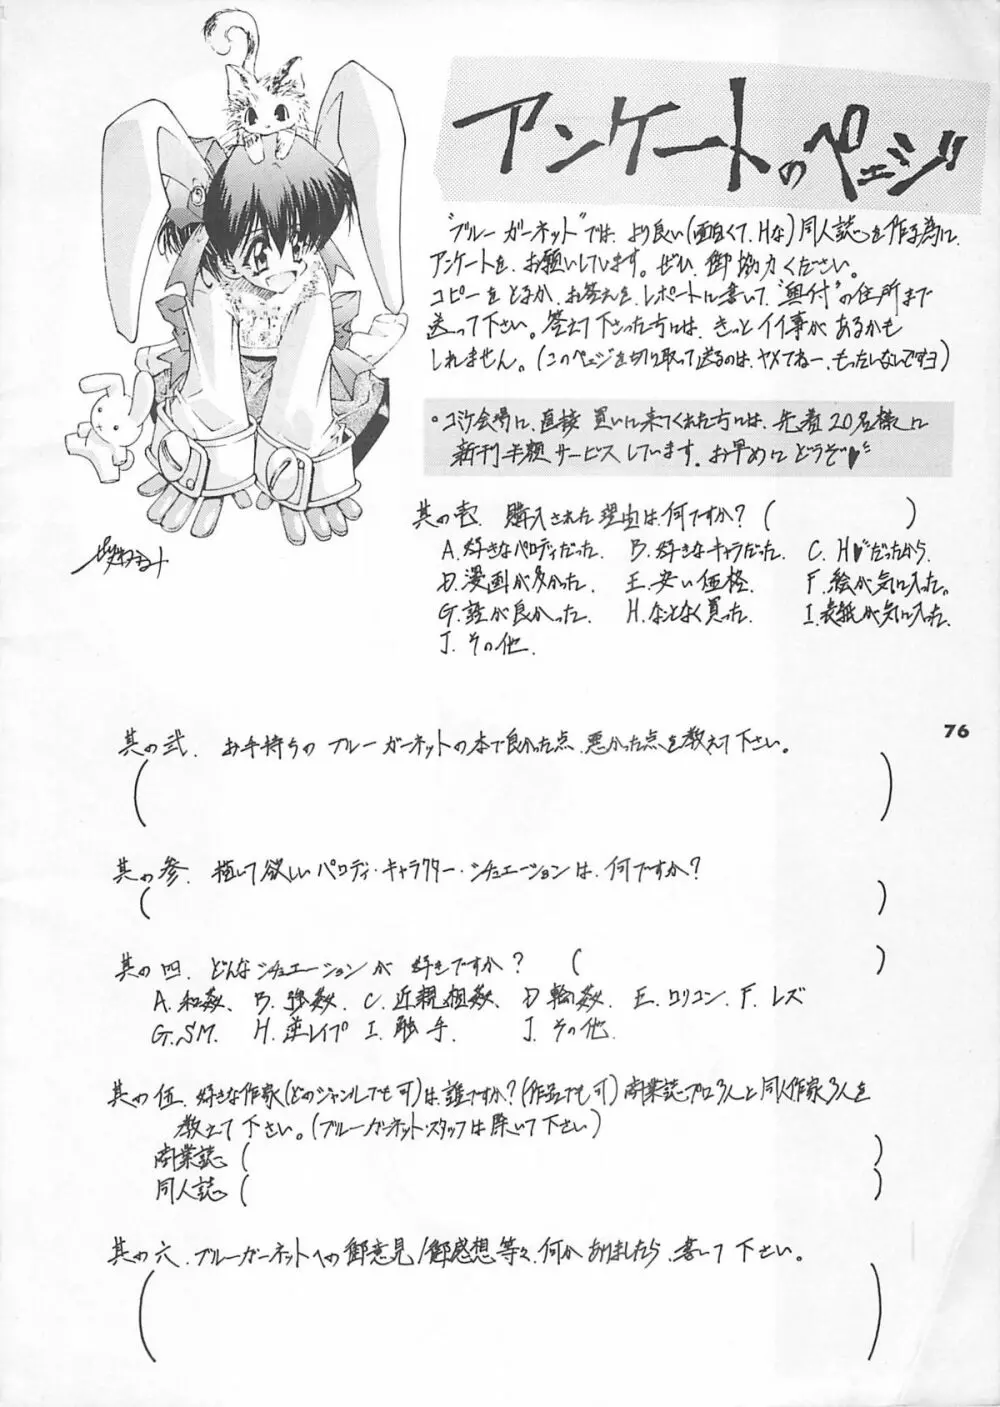 アンケートのページ
"ブルーガーネット"では、より良い(面白くて、Hな)同人誌を作る為に、
アンケートを、お願いしています。ぜひ、御協力ください。
コピーをとるか、お答えを、レポートに書いて、"奥付"の住所まで
送って下さい。答えて下さった方には、きっとイイ事があるかも
しれません。(このページを切り取って送るのは、ヤメてねー、もったいないですヨ)
・コミケ会場に、直接買いに来てくれた方には、先着20名様に
新刊半額サービスしています。お早めにどうぞ♥
其の壱. 購入された理由は、何ですか?( )
A. 好きなパロディだった. B. 好きなキャラだった. C. H♥だったから.
D. 漫画が多かった. E. 安い価格. F. 絵が気に入った。
G. 話が良かった. H. なんとなく買った. I. 表紙が気に入った.
J. その他.
76
其の弐. お手持ちのブルーガーネットの本で良かった点、悪かった点を教えて下さい。
( )
其の参. 描いて欲しいパロディ・キャラクター・シチュエーションは、何ですか?
( )
其の四. どんなシチュエーションが好きですか? ( )
A. 和姦、 B. 強姦、 C. 近親相姦、 D. 輪姦、 E. ロリコン. F. レズ
G. SM. H. 逆レイプ I. 触手. J. その他.
其の伍. 好きな作家(どのジャンルでも可)は、誰ですか?(作品でも可)商業誌プロ3人と同人作家3人を
教えて下さい。(ブルーガーネット・スタッフは除いて下さい)
商業誌( )
同人誌( )
其の六. ブルーガーネットへの御意見/御感想等々、何かありましたら、書いて下さい。
( )